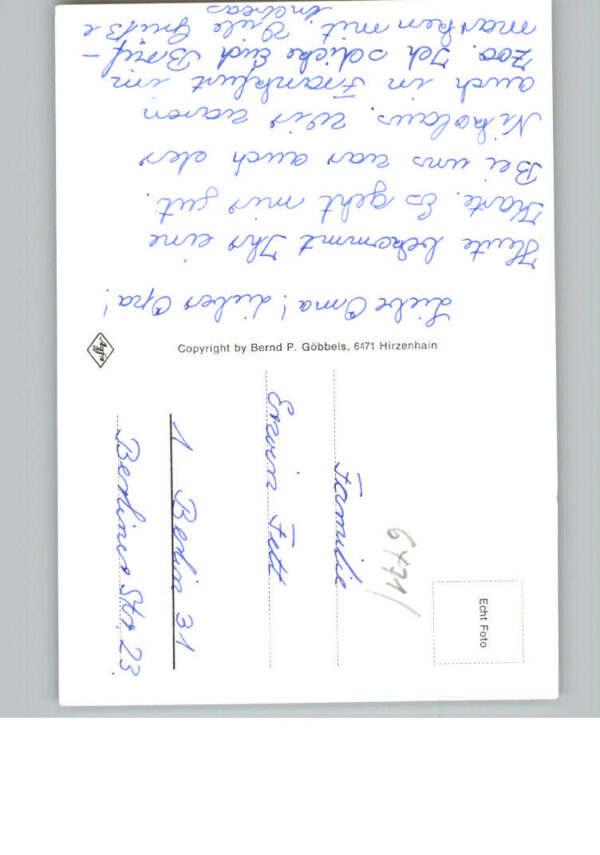 Liebe Oma! Lieber Opa!
Heute bekommt Ihr eine
Karte. Es geht mir gut.
Bei uns war auch der
Nikolaus. Wir waren
auch in Frankfurt im
Zoo. Ich schicke Euch Brief-
marken mit. Viele Grüße
Andreas
Agfa
Copyright by Bernd P. Göbbels, 6471 Hirzenhain
Echt Foto
6471/
Familie
Erwin Fett
1 Berlin 31
Berliner Str. 23